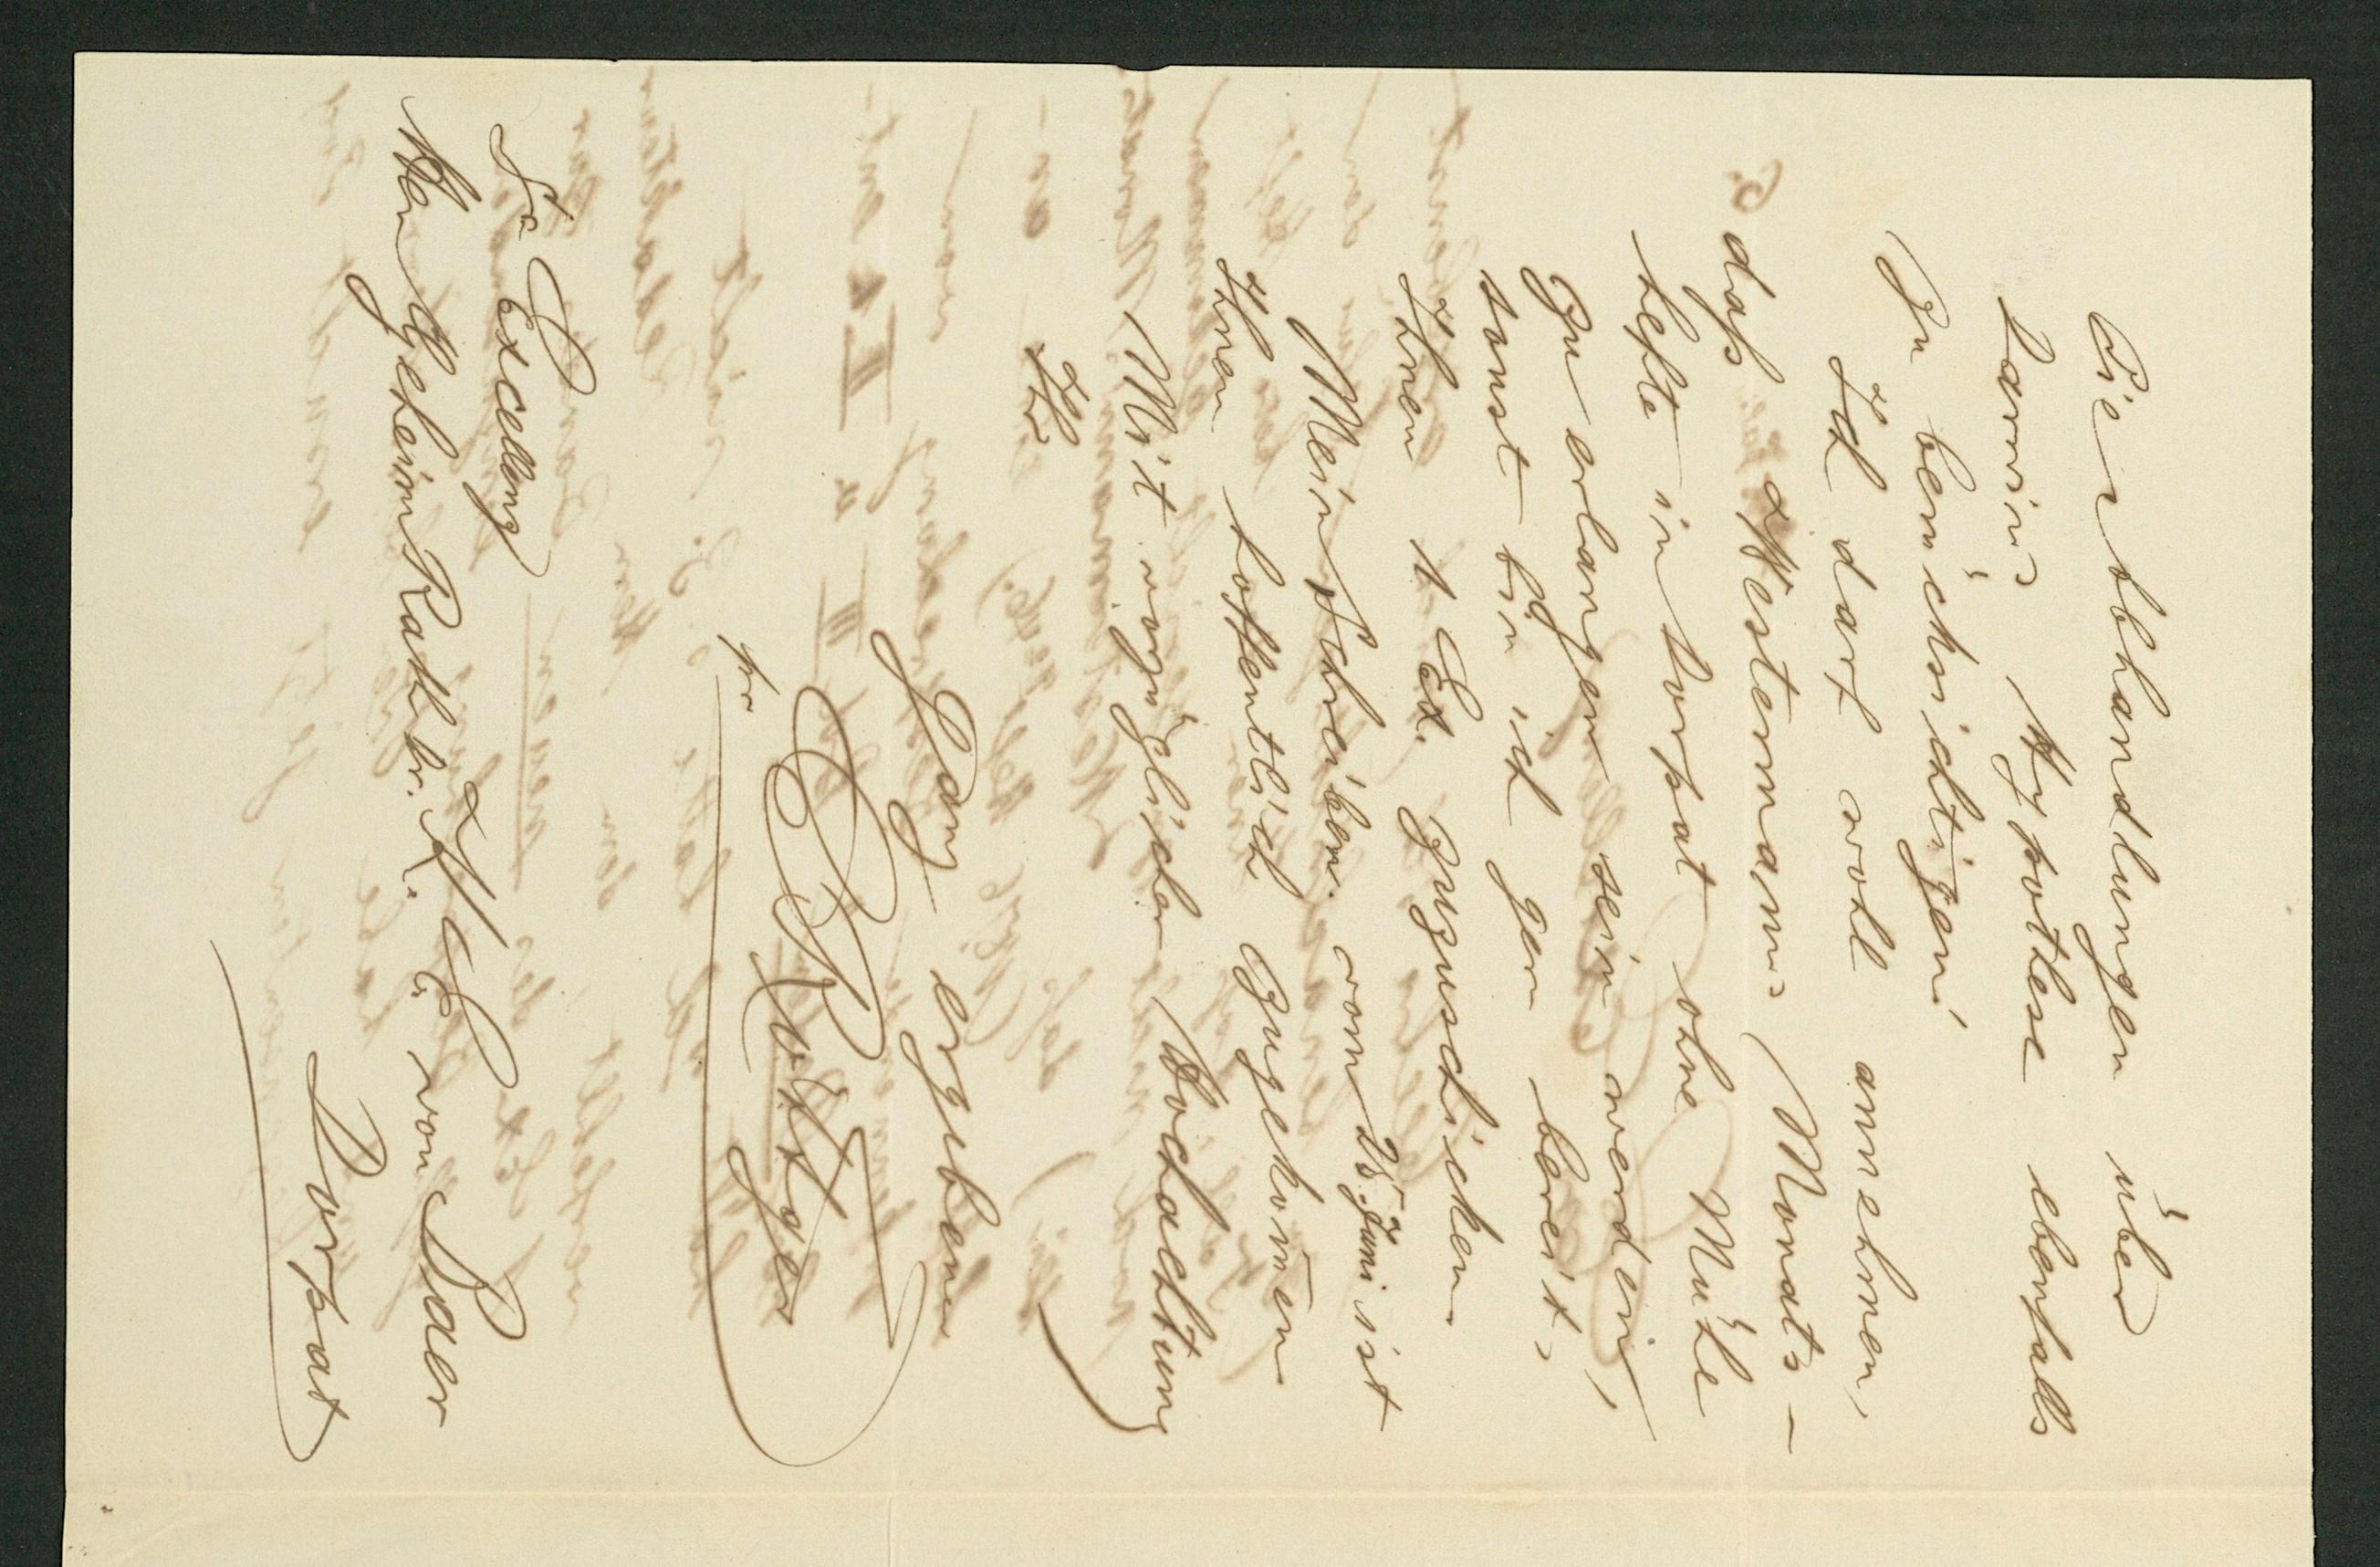 Die Abhandlungen über
Darwins Hypothese ebenfalls
zu berücksichtigen!
Ich darf wohl annehmen,
daß Westermanns Monats-
hefte in Dorpat ohne Mühe
zu erlangen sein werden,
sonst bin ich gern bereit,
Ihnen 1 Ex. zuzuschicken
Mein Schreiben vom 25. Juni ist
Ihnen hoffentlich zugekom̄en
Mit vorzüglicher Hochachtung
Ihr
Ganz ergebener
C Röttger
Sr Excellenz
Herrn Geheim Rath Dr. K. E. von Baer
Dorpat